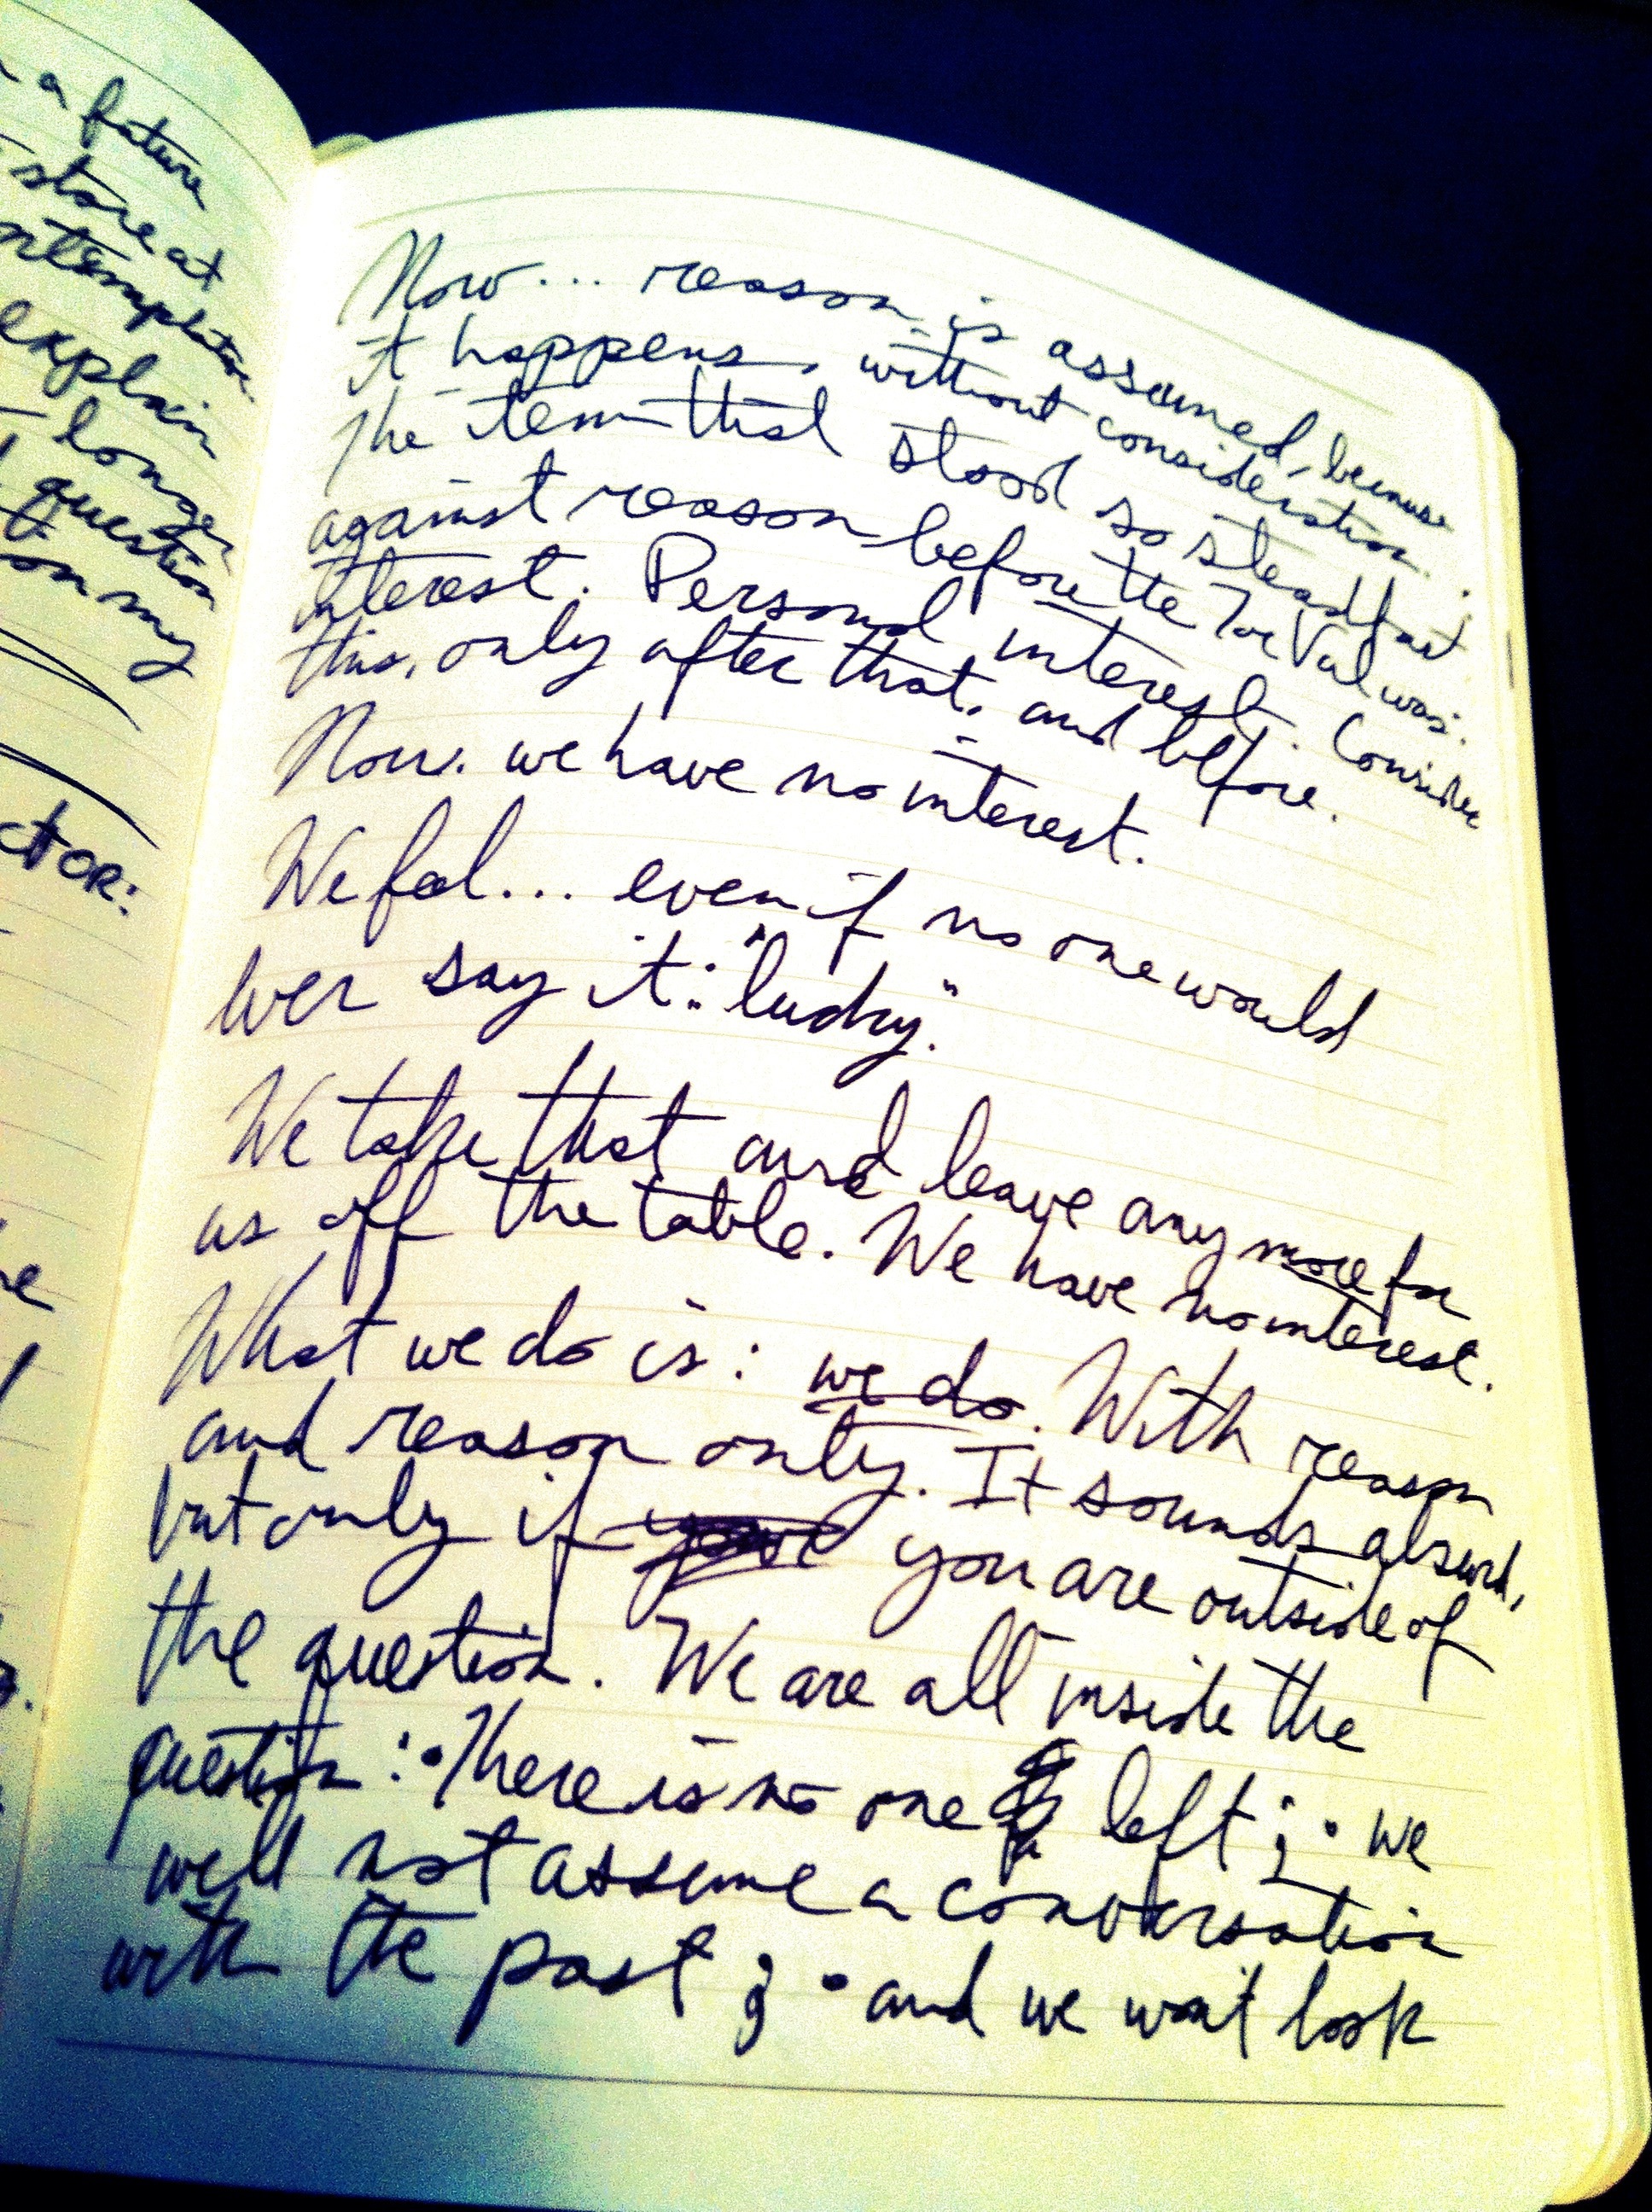 a future
store at
explain
longer
question
on my
ctor:
Now... reason is assumed, because
it happens, without consideration.
The item that stood so steadfast
against reason before the Val was:
interest. Personal interest. Consider
this, only after that, and before.
Now. we have no interest.
We feel... even if no one would
ever say it: "lucky."
We take that and leave any more for
us off the table. We have no interest.
What we do is: we do. With reason
and reason only. It sounds absurd,
but only if you are outside of
the question. We are all inside the
question: • There is no one left; • we
will not assume a conversation
with the past; • and we won't look